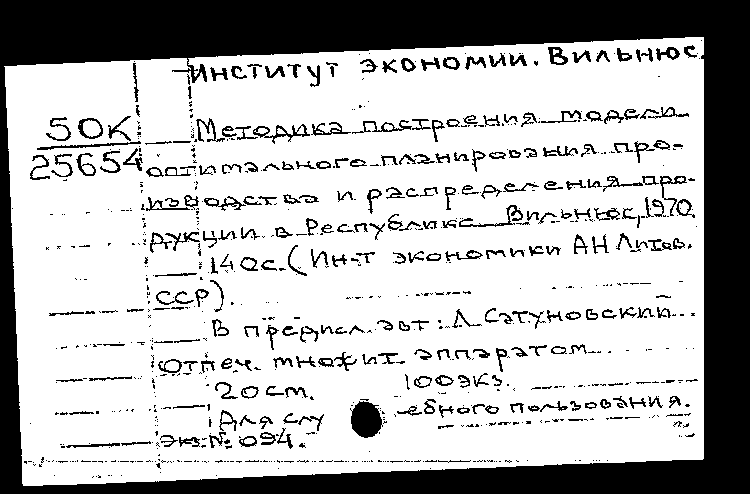 Институт экономии. Вильнюс.
50К
25654
Методика построения модели
оптимального планирования про-
изводства и распределения про-
дукции в Республике Вильнюс, 1970.
140с. (Ин-т экономики АН Литов.
ССР).
В предисл. авт: Л. Сатуновский
Отпеч. множит. аппаратом
20 см. 100 экз.
Для слу ебного пользования.
экз. № 094.